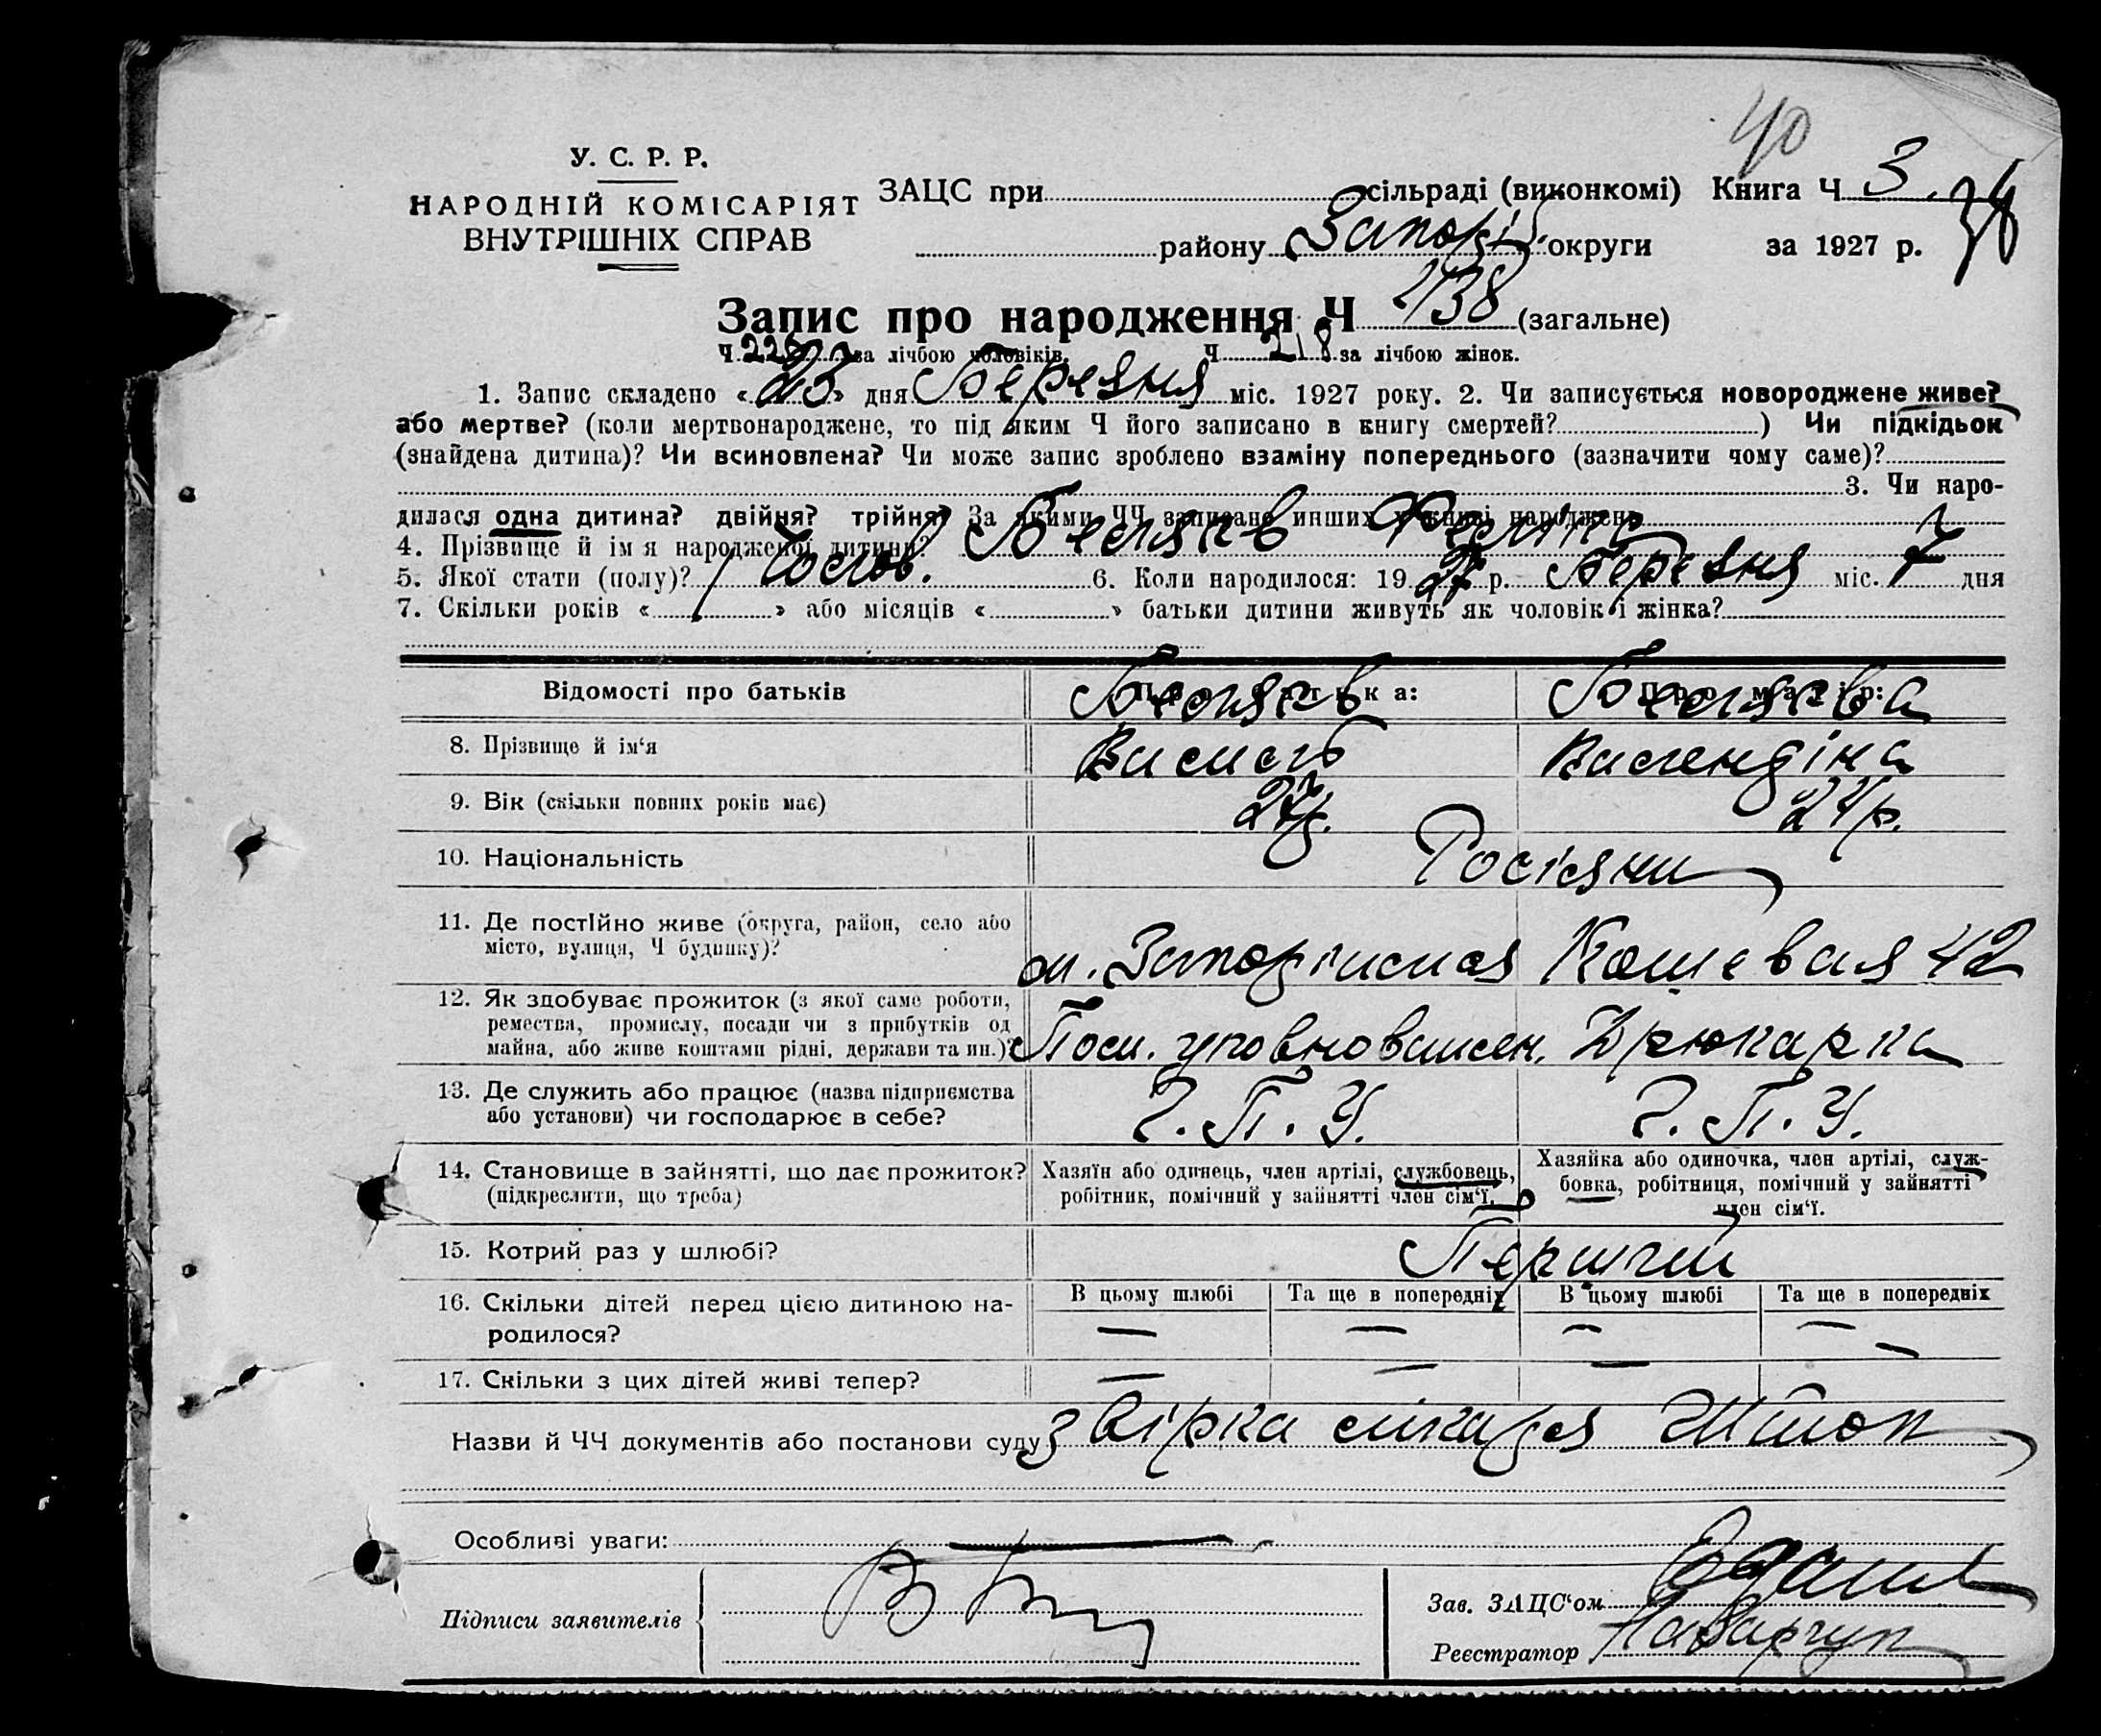 40
У. С. Р. Р.
НАРОДНІЙ КОМІСАРІЯТ
ВНУТРІШНІХ СПРАВ
ЗАЦС при сільраді (виконкомі) Книга Ч 3.
району Запоріз. округи за 1927 р.
Запис про народження Ч 438 (загальне)
Ч за лічбою чоловіків. Ч 218 за лічбою жінок.
1. Запис складено « 23 » дня Березня міс. 1927 року. 2. Чи записується новороджене живе?
або мертве? (коли мертвонароджене, то під яким Ч його записано в книгу смертей? ) Чи підкідьок
(знайдена дитина)? Чи всиновлена? Чи може запис зроблено взаміну попереднього (зазначити чому саме)?
3. Чи наро-
дилася одна дитина? двійня? трійня? За якими ЧЧ записано инших у книзі народжень
4. Прізвище й ім я народженої дитини?
5. Якої стати (полу)? Чолов. 6. Коли народилося: 19 27 р. Березня міс. 7 дня
7. Скільки років « » або місяців « » батьки дитини живуть як чоловік і жінка?
Відомості про батьків Про батька: Про матір:
8. Прізвище й ім‘я
9. Вік (скільки повних років має) 27р. 24р.
10. Національність Росіяни
11. Де постійно живе (округа, район, село або
місто, вулиця, Ч будинку)?
м. Кошевая 42
12. Як здобуває прожиток (з якої саме роботи,
ремества, промислу, посади чи з прибутків од
майна, або живе коштами рідні, держави та ин.)?
Пом. уповноважен. Друкарка
13. Де служить або працює (назва підприємства
або установи) чи господарює в себе?
Г. П. У. Г. П. У.
14. Становище в зайнятті, що дає прожиток?
(підкреслити, що треба)
Хазяїн або одинець, член артілі, службовець,
робітник, помічний у зайнятті член сім‘ї.
Хазяйка або одиночка, член артілі, служ-
бовка, робітниця, помічний у зайнятті
член сім‘ї.
15. Котрий раз у шлюбі? Перший
16. Скільки дітей перед цією дитиною на-
родилося?
В цьому шлюбі Та ще в попередніх В цьому шлюбі Та ще в попередніх
— — — —
17. Скільки з цих дітей живі тепер?
— — —
Назви й ЧЧ документів або постанови суду
Особливі уваги: —
Підписи заявителів
Зав. ЗАЦС‘ом
Реєстратор